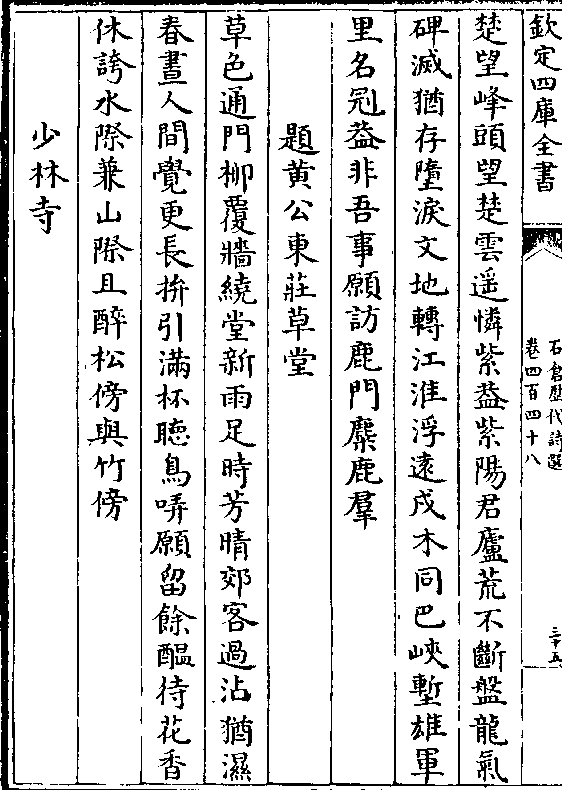 欽定四庫全書
石倉歷代詩選
卷四百四十八
三十五
楚望峰頭望楚雲遥憐紫葢紫陽君廬荒不斷盤龍氣
碑滅猶存墮淚文地轉江淮浮遠戍木同巴峽塹雄軍
里名冠葢非吾事願訪鹿門麋鹿羣
題黄公東莊草堂
草色通門柳覆牆繞堂新雨足時芳晴郊客過沾猶濕
春晝人間覺更長拚引滿杯聴鳥哢願留餘醖待花香
休誇水際兼山際且醉松傍與竹傍
少林寺